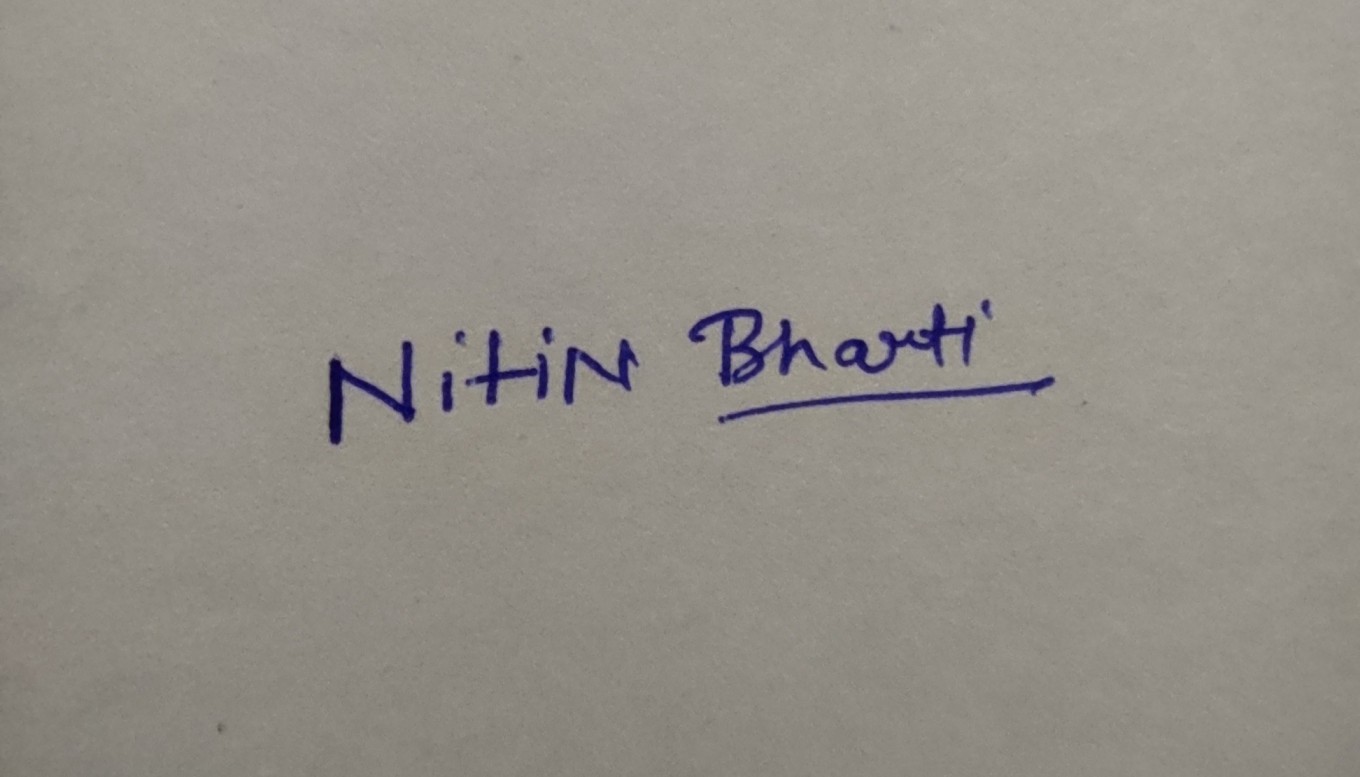 NitiN Bharti